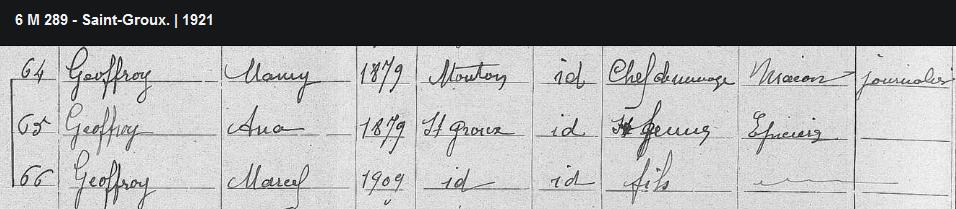 6 M 289 - Saint-Groux. | 1921
64 Geoffroy 1879 Mouton id Chef de menage Macon journalier
65 Geoffroy Ana 1879 St Groux id femme Epiciere
66 Geoffroy Marcel 1909 id id fils